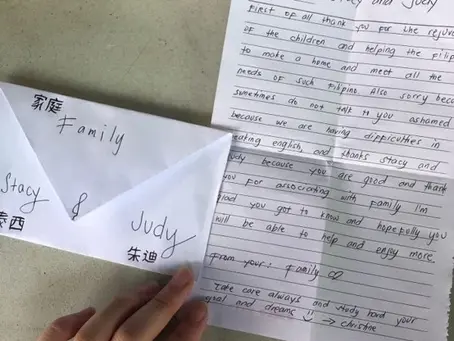 家庭
Family
Stacy & Judy
泰西
朱迪
Stacy and Judy
First of all thank you for the rejuv
of the children and helping the Filip
to make a home and meet all the
needs of such Filipino Also sorry becau
sometimes do not talk u ashamed
because we are having difficulties in
eaking english, and thanks stacy and
udy because you are good and thank
you for associating with family I'm
glad you got to know and hopefully you
will be able to help and enjoy more.
From your: Family
take care always and study hard your
goal and dreams → christine